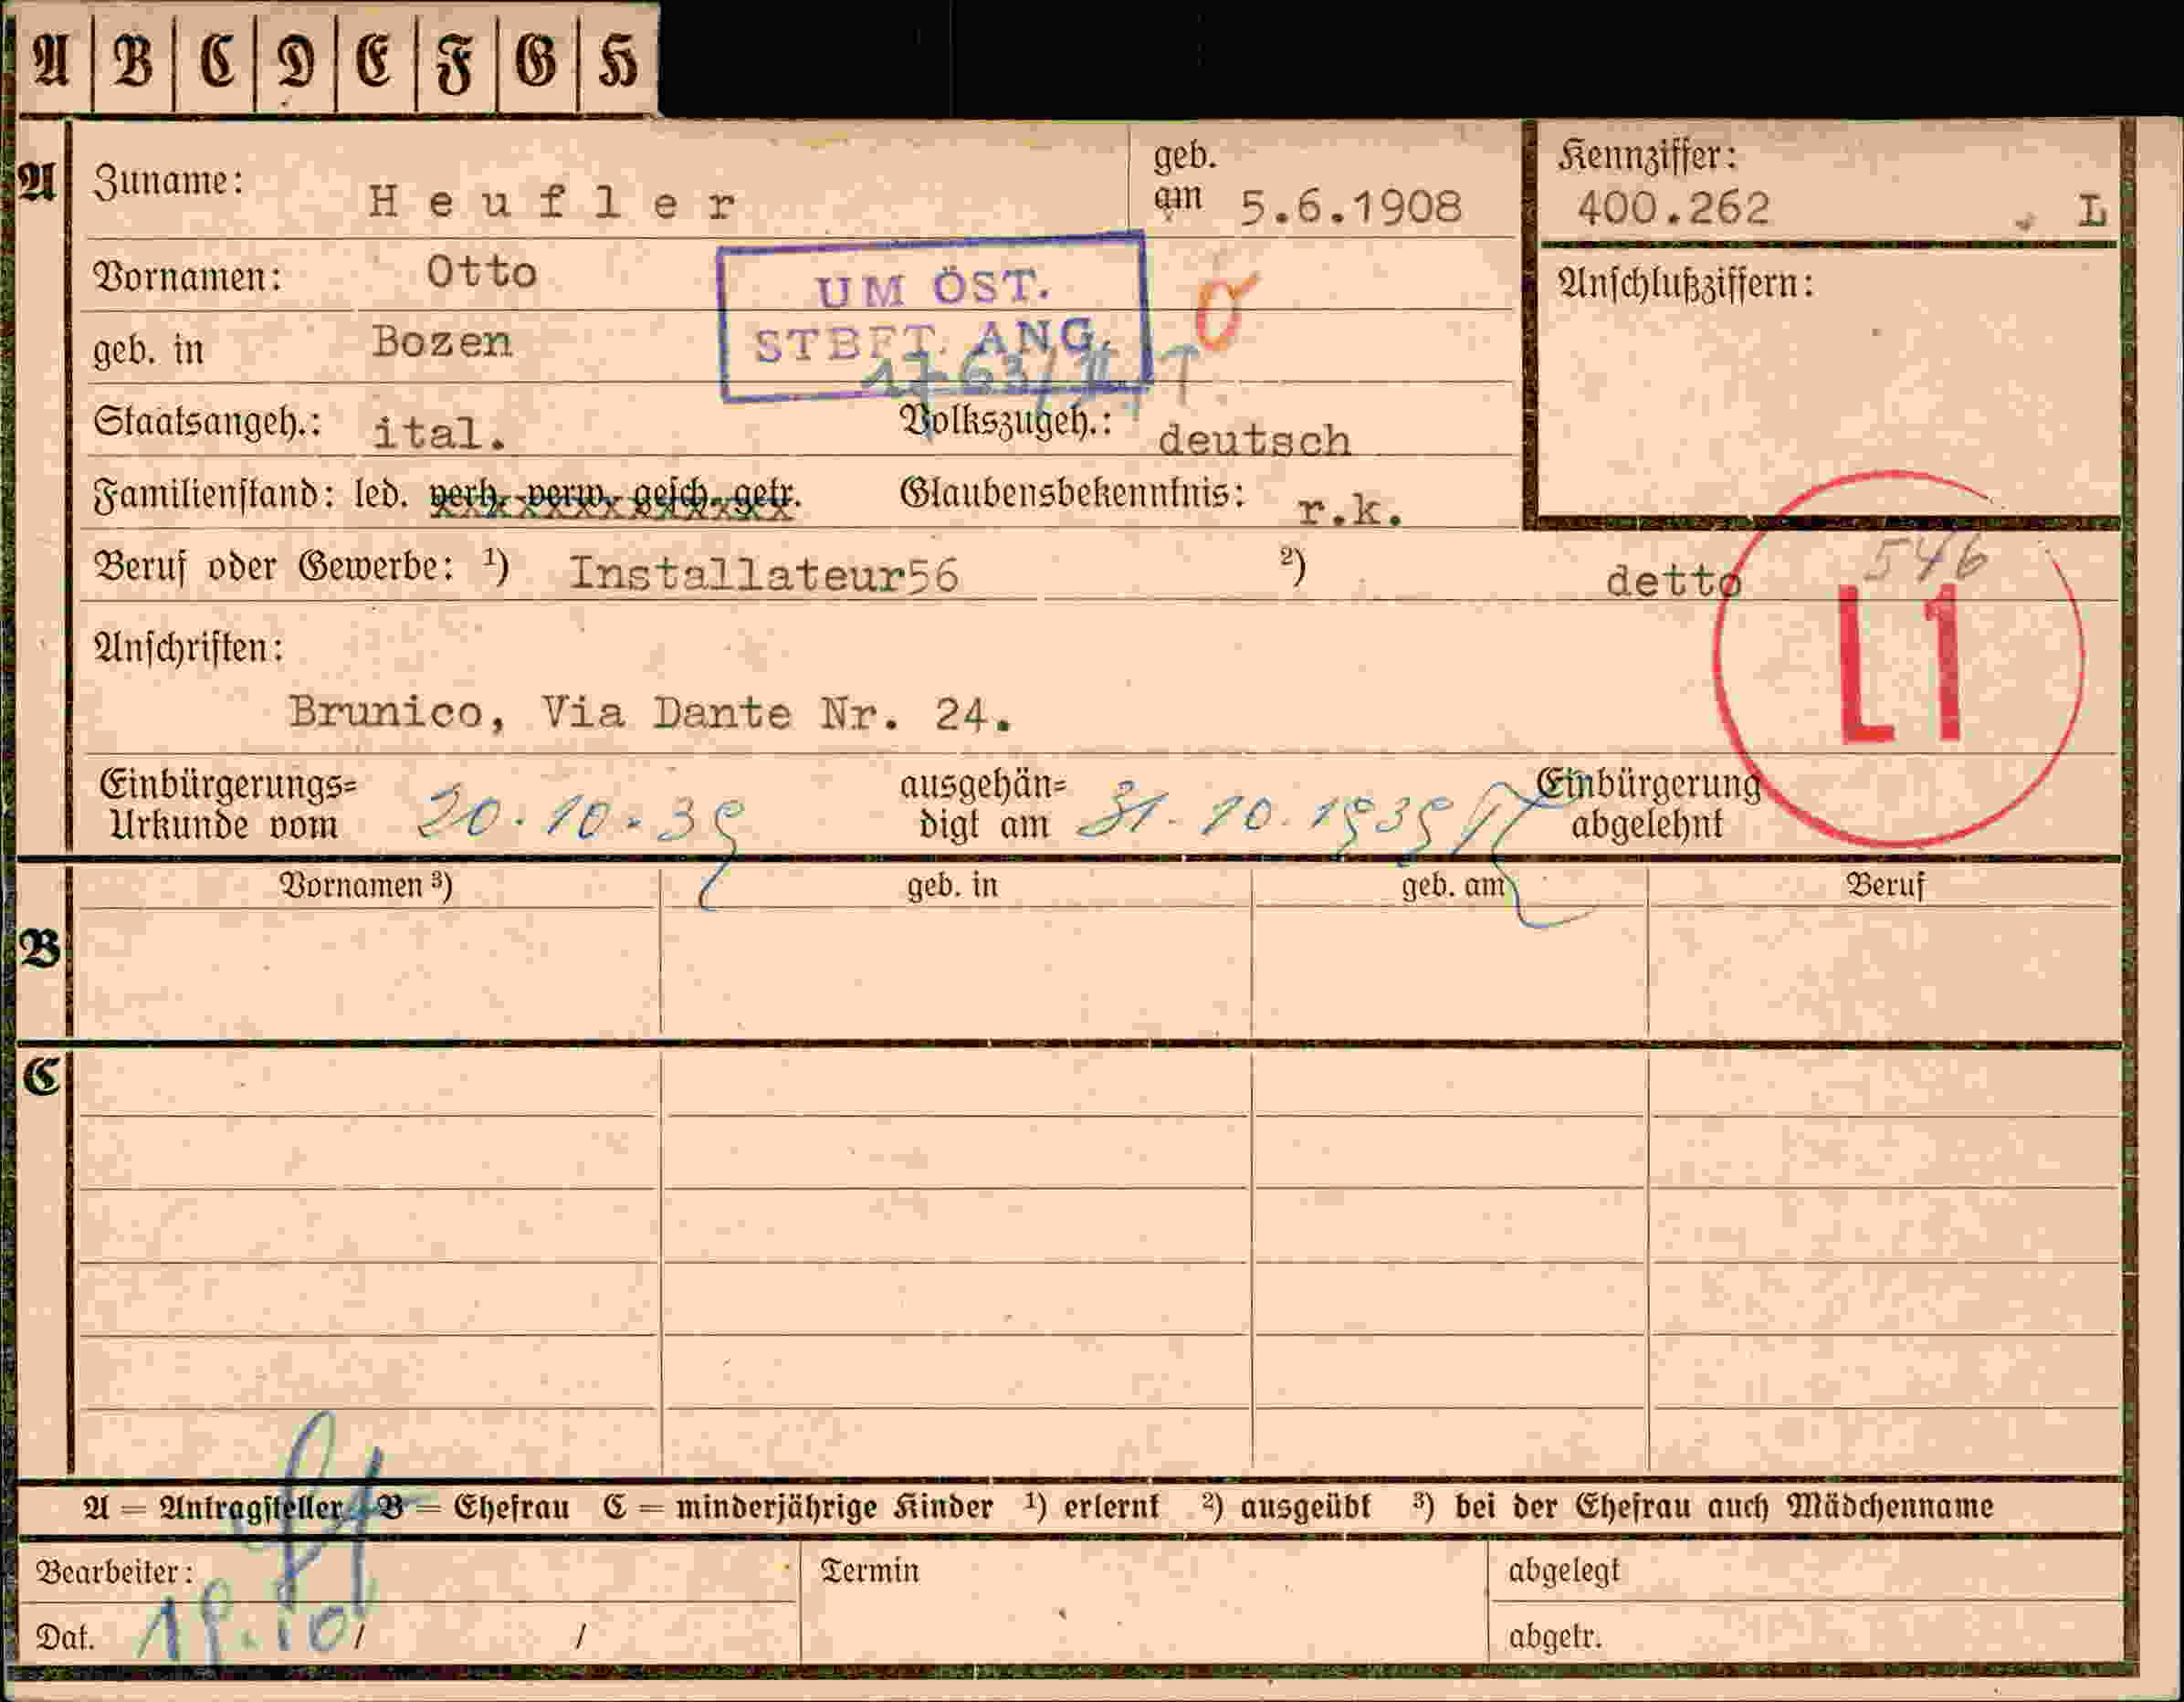 A B C D E F G H
A Zuname: Heufler geb. am 5.6.1908 Kennziffer: 400.262 L
Vornamen: Otto Anschlußziffern:
UM ÖST.
STBFT. ANG.
geb. in Bozen
Staatsangeh.: ital. Volkszugeh.: deutsch
Familienstand: led. verh. verw. gesch. getr. Glaubensbekenntnis: r.k.
546
Beruf oder Gewerbe: 1) Installateur56 2) detto
L1
Anschriften:
Brunico, Via Dante Nr. 24.
Einbürgerungs= ausgehän= Einbürgerung
Urkunde vom 20.10.39 digt am 31.10.1939 abgelehnt
Vornamen 3) geb. in geb. am Beruf
B
C
A = Antragsteller B = Ehefrau C = minderjährige Kinder 1) erlernt 2) ausgeübt 3) bei der Ehefrau auch Mädchenname
Bearbeiter: Termin abgelegt
Dat. 19.10/ / abgetr.